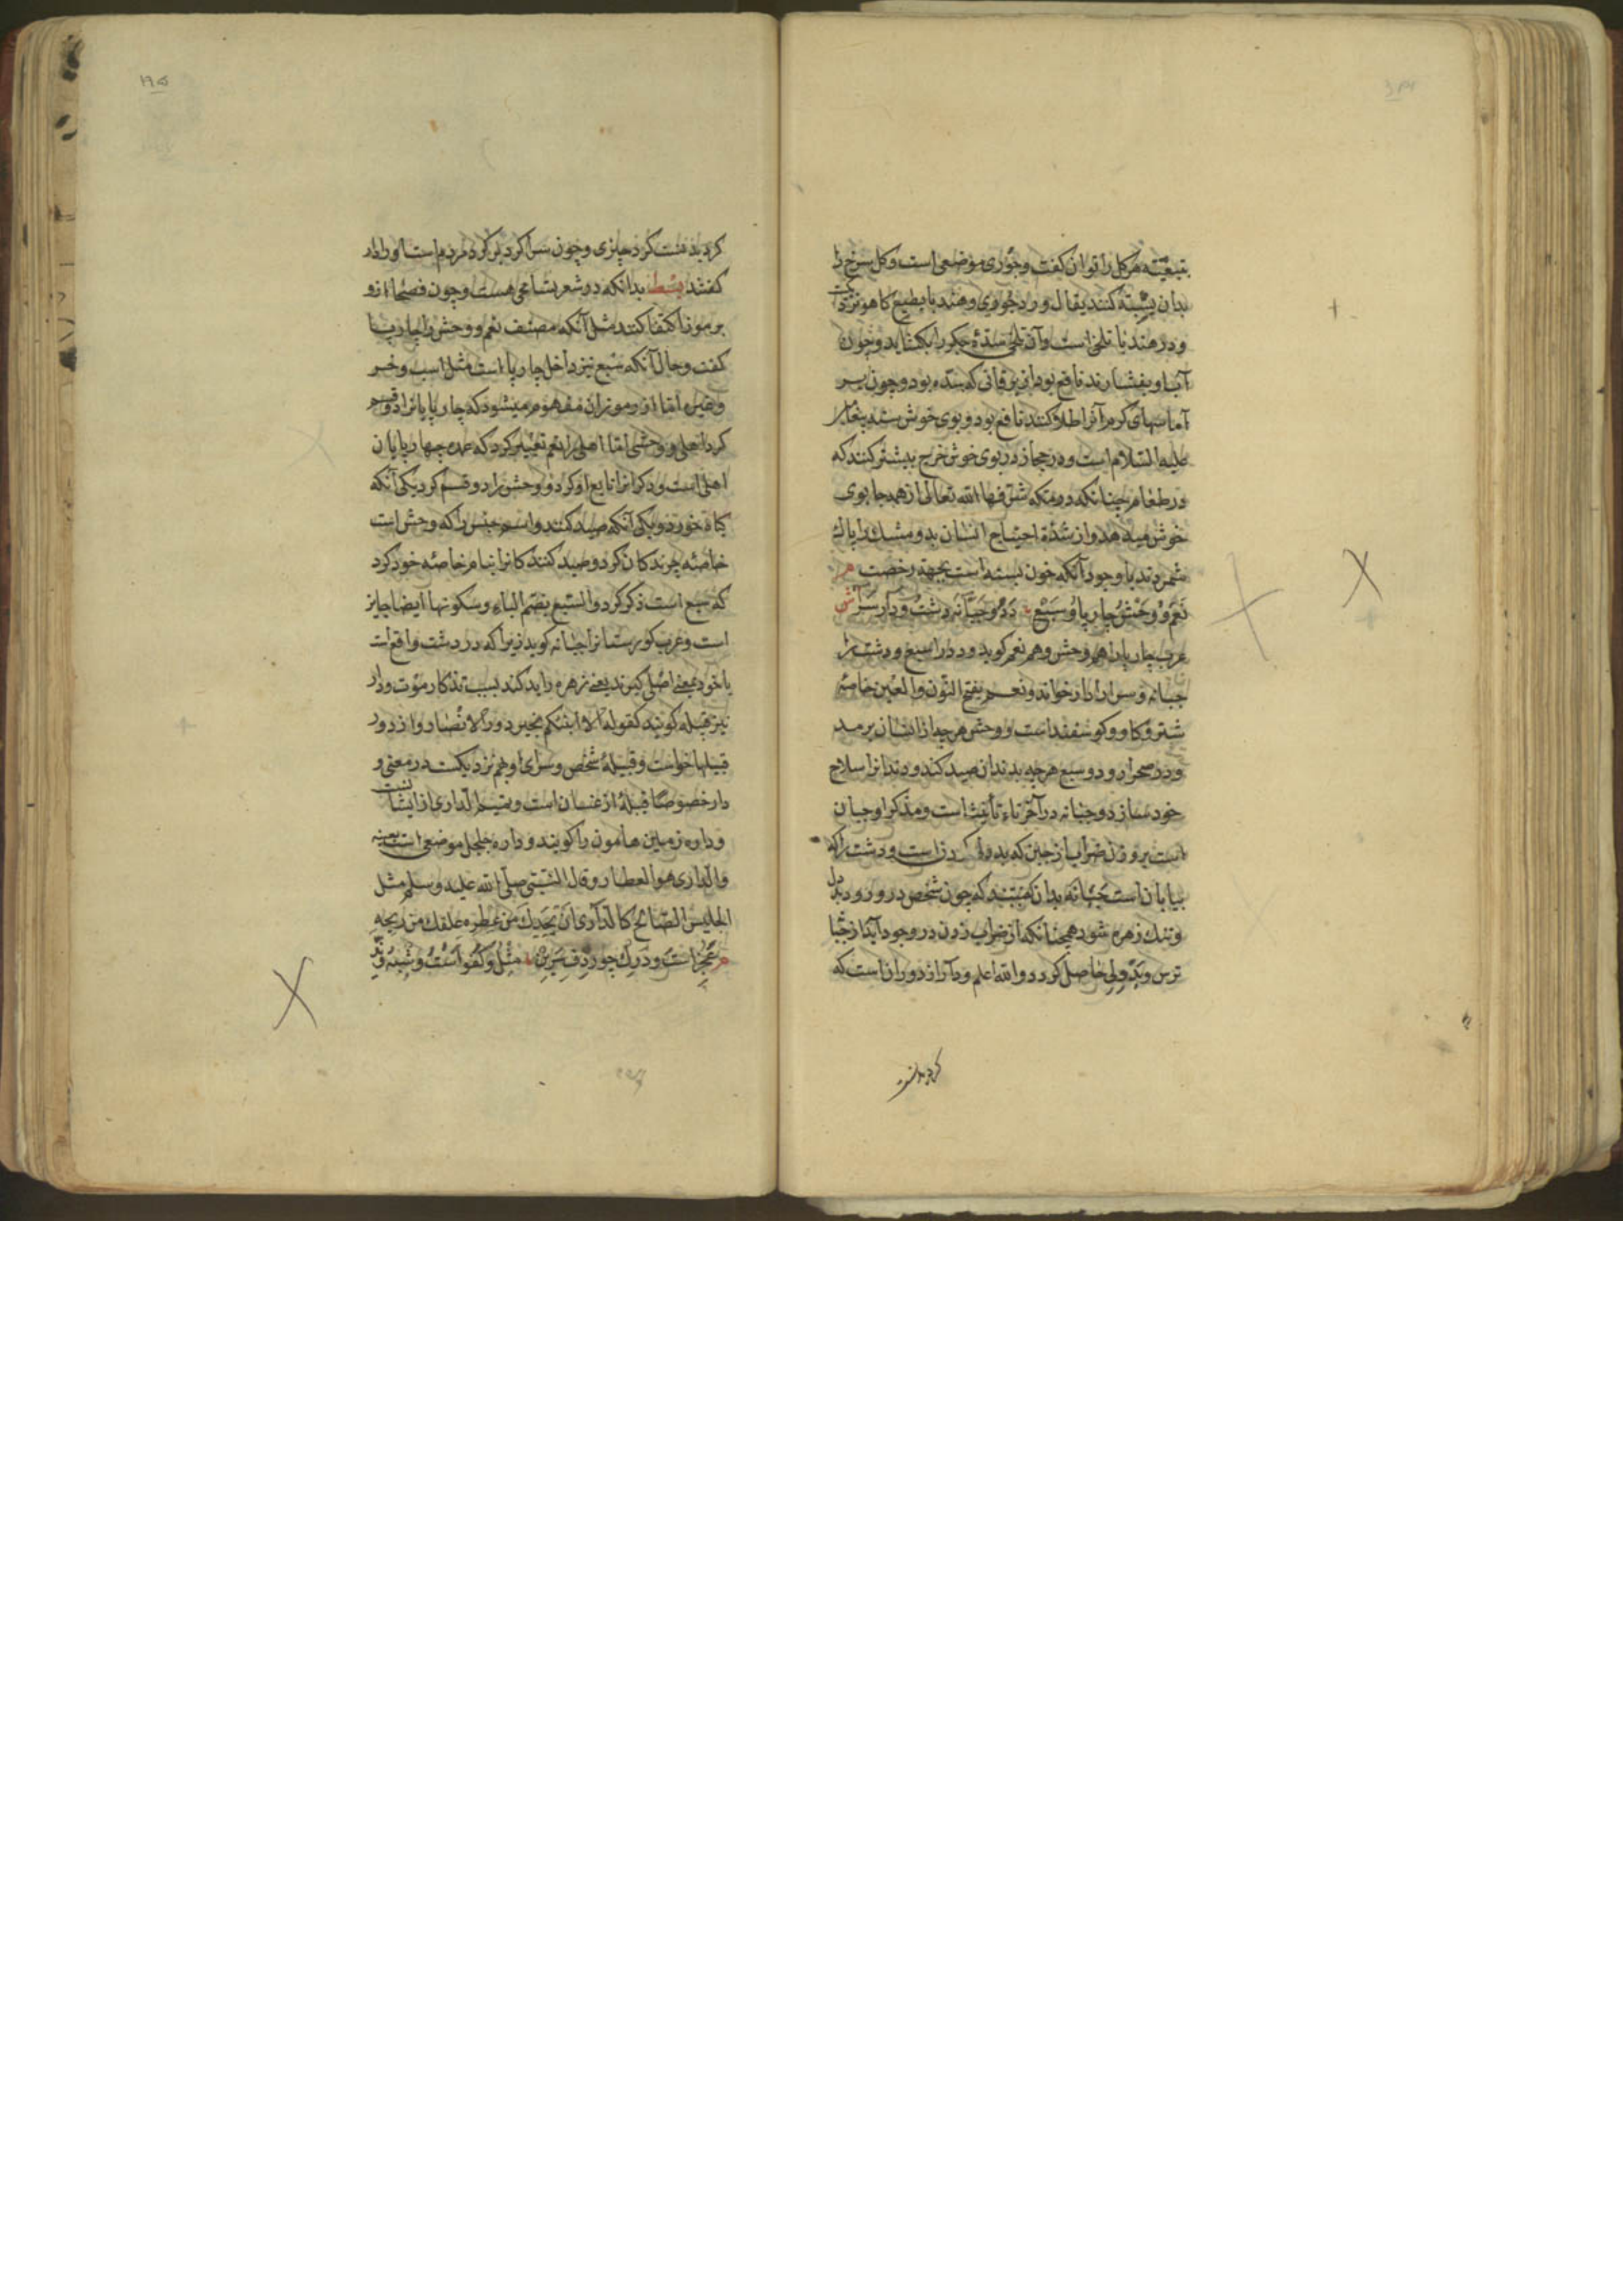 بتبعیّت هر کل را توان کفت وجوری موضعی است وکل سرخ را
بدان نسبته کنند یقال ورد جوری وهند با بطبع کاهو نزدیکست
ودر هند با تلخی است وآن تلخی سدّهٔ جکر را بکشاید وچون
آب او بفشارند نافع بود از یرقانی که سده بود وچون بر
آماسهای کرم آنرا طلا کنند نافع بود وبوی خوش سنه پیغامبر
علیه السّلام است ودر حجاز در بوی خوش خرج بیشتر کنند که
در طعام چنانکه در مکه شرّفها الله تعالی از همه جا بوی
خوش میدهد واز شدّة احتیاج انسان بدو مشک را پاک
شمردند با وجود آنکه خون بسته است بجهة رخصت م
نَعَم وُ وَحْش چارپا وُ سَبُع دَدْ وجَبّانَه دشتْ ودار سَرا ش
عرب چارپا را هم وحش وهم نعم کوید ودد را سبع ودشت را
جبانه وسرا را دار خواند ونعم بفتح النّون والعین خاصه
شتر وکاو وکوسفند است ووحش هر چه از انسان برمد
ودر صحرا رود وسبع هر چه بدندان صید کند ودندانرا سلاح
خود سازد وجبّانه در آخر تاء تأنیث است ومذکر او جبان
است بر وزن ضراب از جبن که بددلی کردن است ودشت را که
بیابان است جَبّانَه بدان کفتند که چون شخص درو رود بددل
وتنک زهره شود همچنانکه از ضراب زدن در وجود آید از جبّا
ترس وبَدْدِلی حاصل کردد والله اعلم ودار از دوران است که
کردیدنست
کردیدنست کرد چیزی وچون سرا کرد بر کرد مردم است او را دار
کفتند بسط بدانکه در شعر بتنامی هست وچون فصحا ازو
برموز اکتفا کنند مثل آنکه مصنف نعم ووحش را چارپا
کفت وحال آنکه سبع نیز داخل چارپا است مثل اسب وخر
وغیره اما از رموز آن مفهوم میشود که چارپایانرا دو قسم
کرد اهلی ووحشی اما اهلی را نعم تعبیر کرد که عمده چهارپایان
اهلی است ودکرانرا تابع او کرد ووحش را دو قسم کرد یکی آنکه
کیاه خورد ویکی آنکه صید کند واسم جنس را که وحش است
خاصّه چرندکان کرد وصید کنندکانرا بنام خاصّه خود کرد
که سبع است ذکر کرد والسّبع بضّم الباء وسکونها ایضا جایز
است وعرب کورستانرا جبّانه کوید زیرا که در دشت واقع است
یا خود بمعنی اصلی کیرند یعنی زهره را بد کند بسبب تذکار موت ودار
نیز قبیله کویند کقوله الا انبئکم بخیر دور الانصار واز دور
قبیلها خواست وقبیلهٔ شخص وسرای او هم نزدیکست در معنی و
دار خصوصًا قبیلهٔ از غسان است وتمیم الدّاری از ایشانست
وداره زمین هامون را کویند وداره جلجل موضعی است بعینه
والدّاری هو العطار وقال النّبی صلّی الله علیه وسلم مثل
الجلیس الصّالح کالدّاری ان لم یُحذِک من عِطْرِه عَلِقَک من ریحِهِ
م عَجُز است ودَرِک جو رِدف سَرِین مثْل وَکُفو است وشَبه وَنِدّ